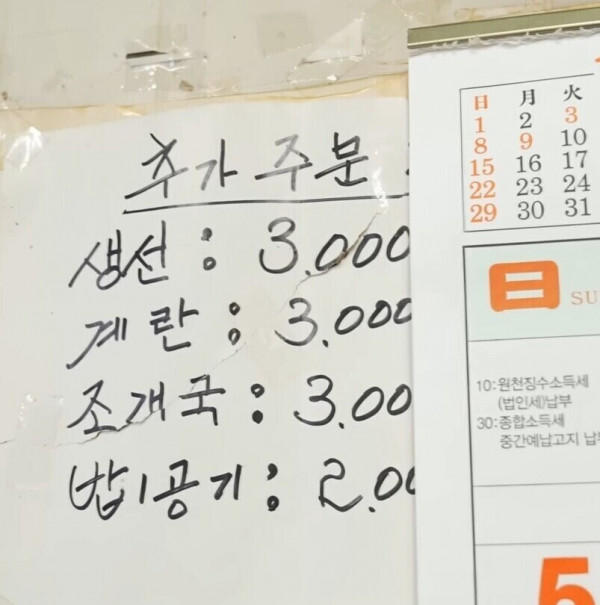 추가 주문
생선: 3.000
계란: 3.000
조개국: 3.00
밥1공기: 2.00
日 月 火
1 2 3
8 9 10
15 16 17
22 23 24
29 30 31
日 SU
10:원천징수소득세
(법인세)납부
30:종합소득세
중간예납고지 납부
5